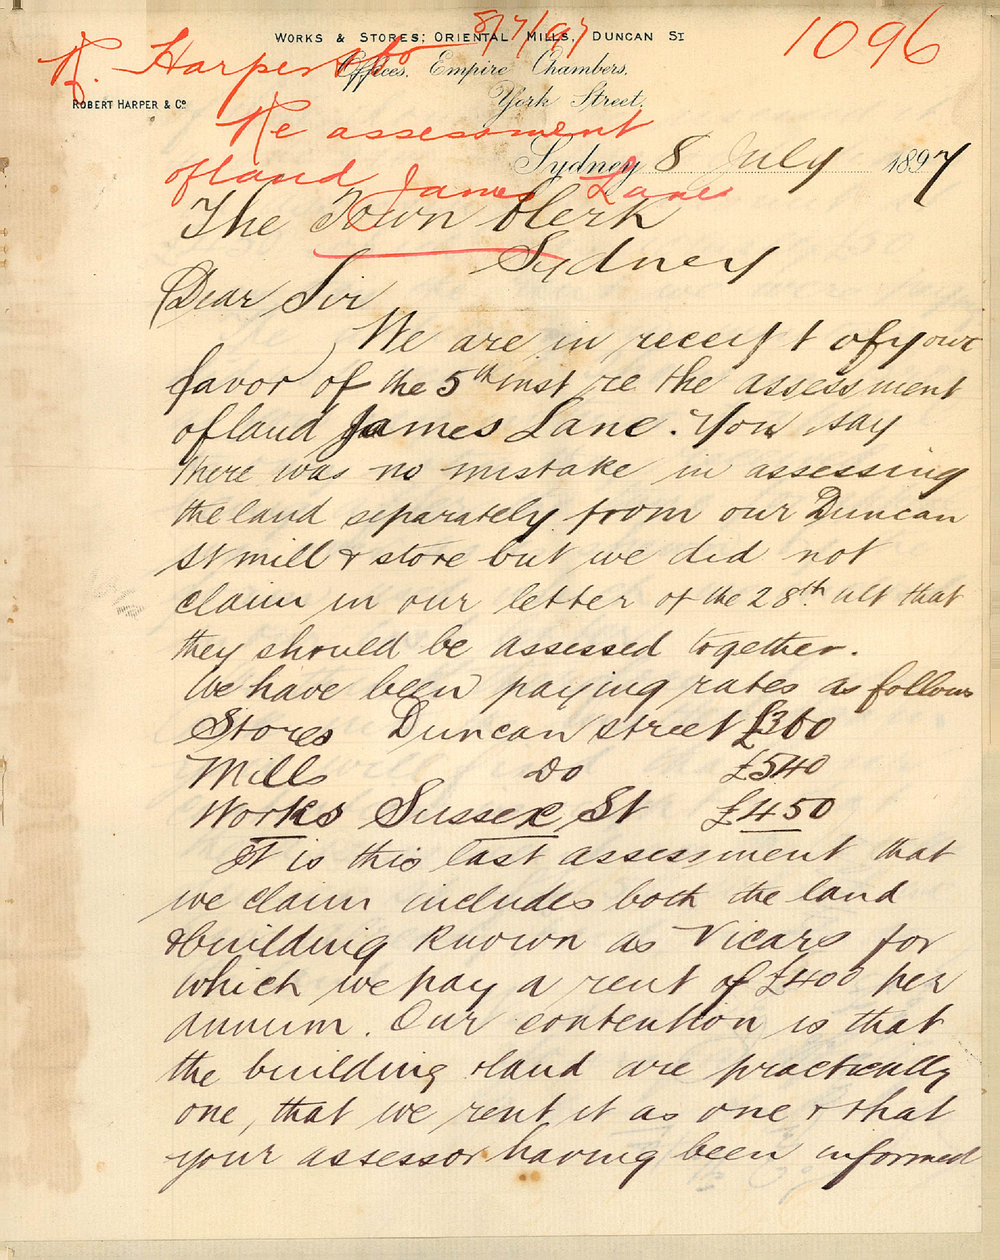 WORKS & STORES; ORIENTAL MILLS, DUNCAN ST
8/7/97
1096
R. Harper & Co
Offices, Empire Chambers,
York Street,
ROBERT HARPER & Co.
Re assessment
of land James Lane
Sydney 8 July 1897
The Town Clerk
Sydney
Dear Sir
We are in receipt of your
favor of the 5th inst re the assessment
of land James Lane. You say
there was no mistake in assessing
the land separately from our Duncan
St mill & store but we did not
claim in our letter of the 28th ult that
they should be assessed together.
We have been paying rates as follows
Stores Duncan street £360
Mills Do £540
Works Sussex St £450
It is this last assessment that
we claim includes both the land
& building known as Vicars for
which we pay a rent of £400 per
annum. Our contention is that
the building & land are practically
one, that we rent it as one & that
your assessor having been informed